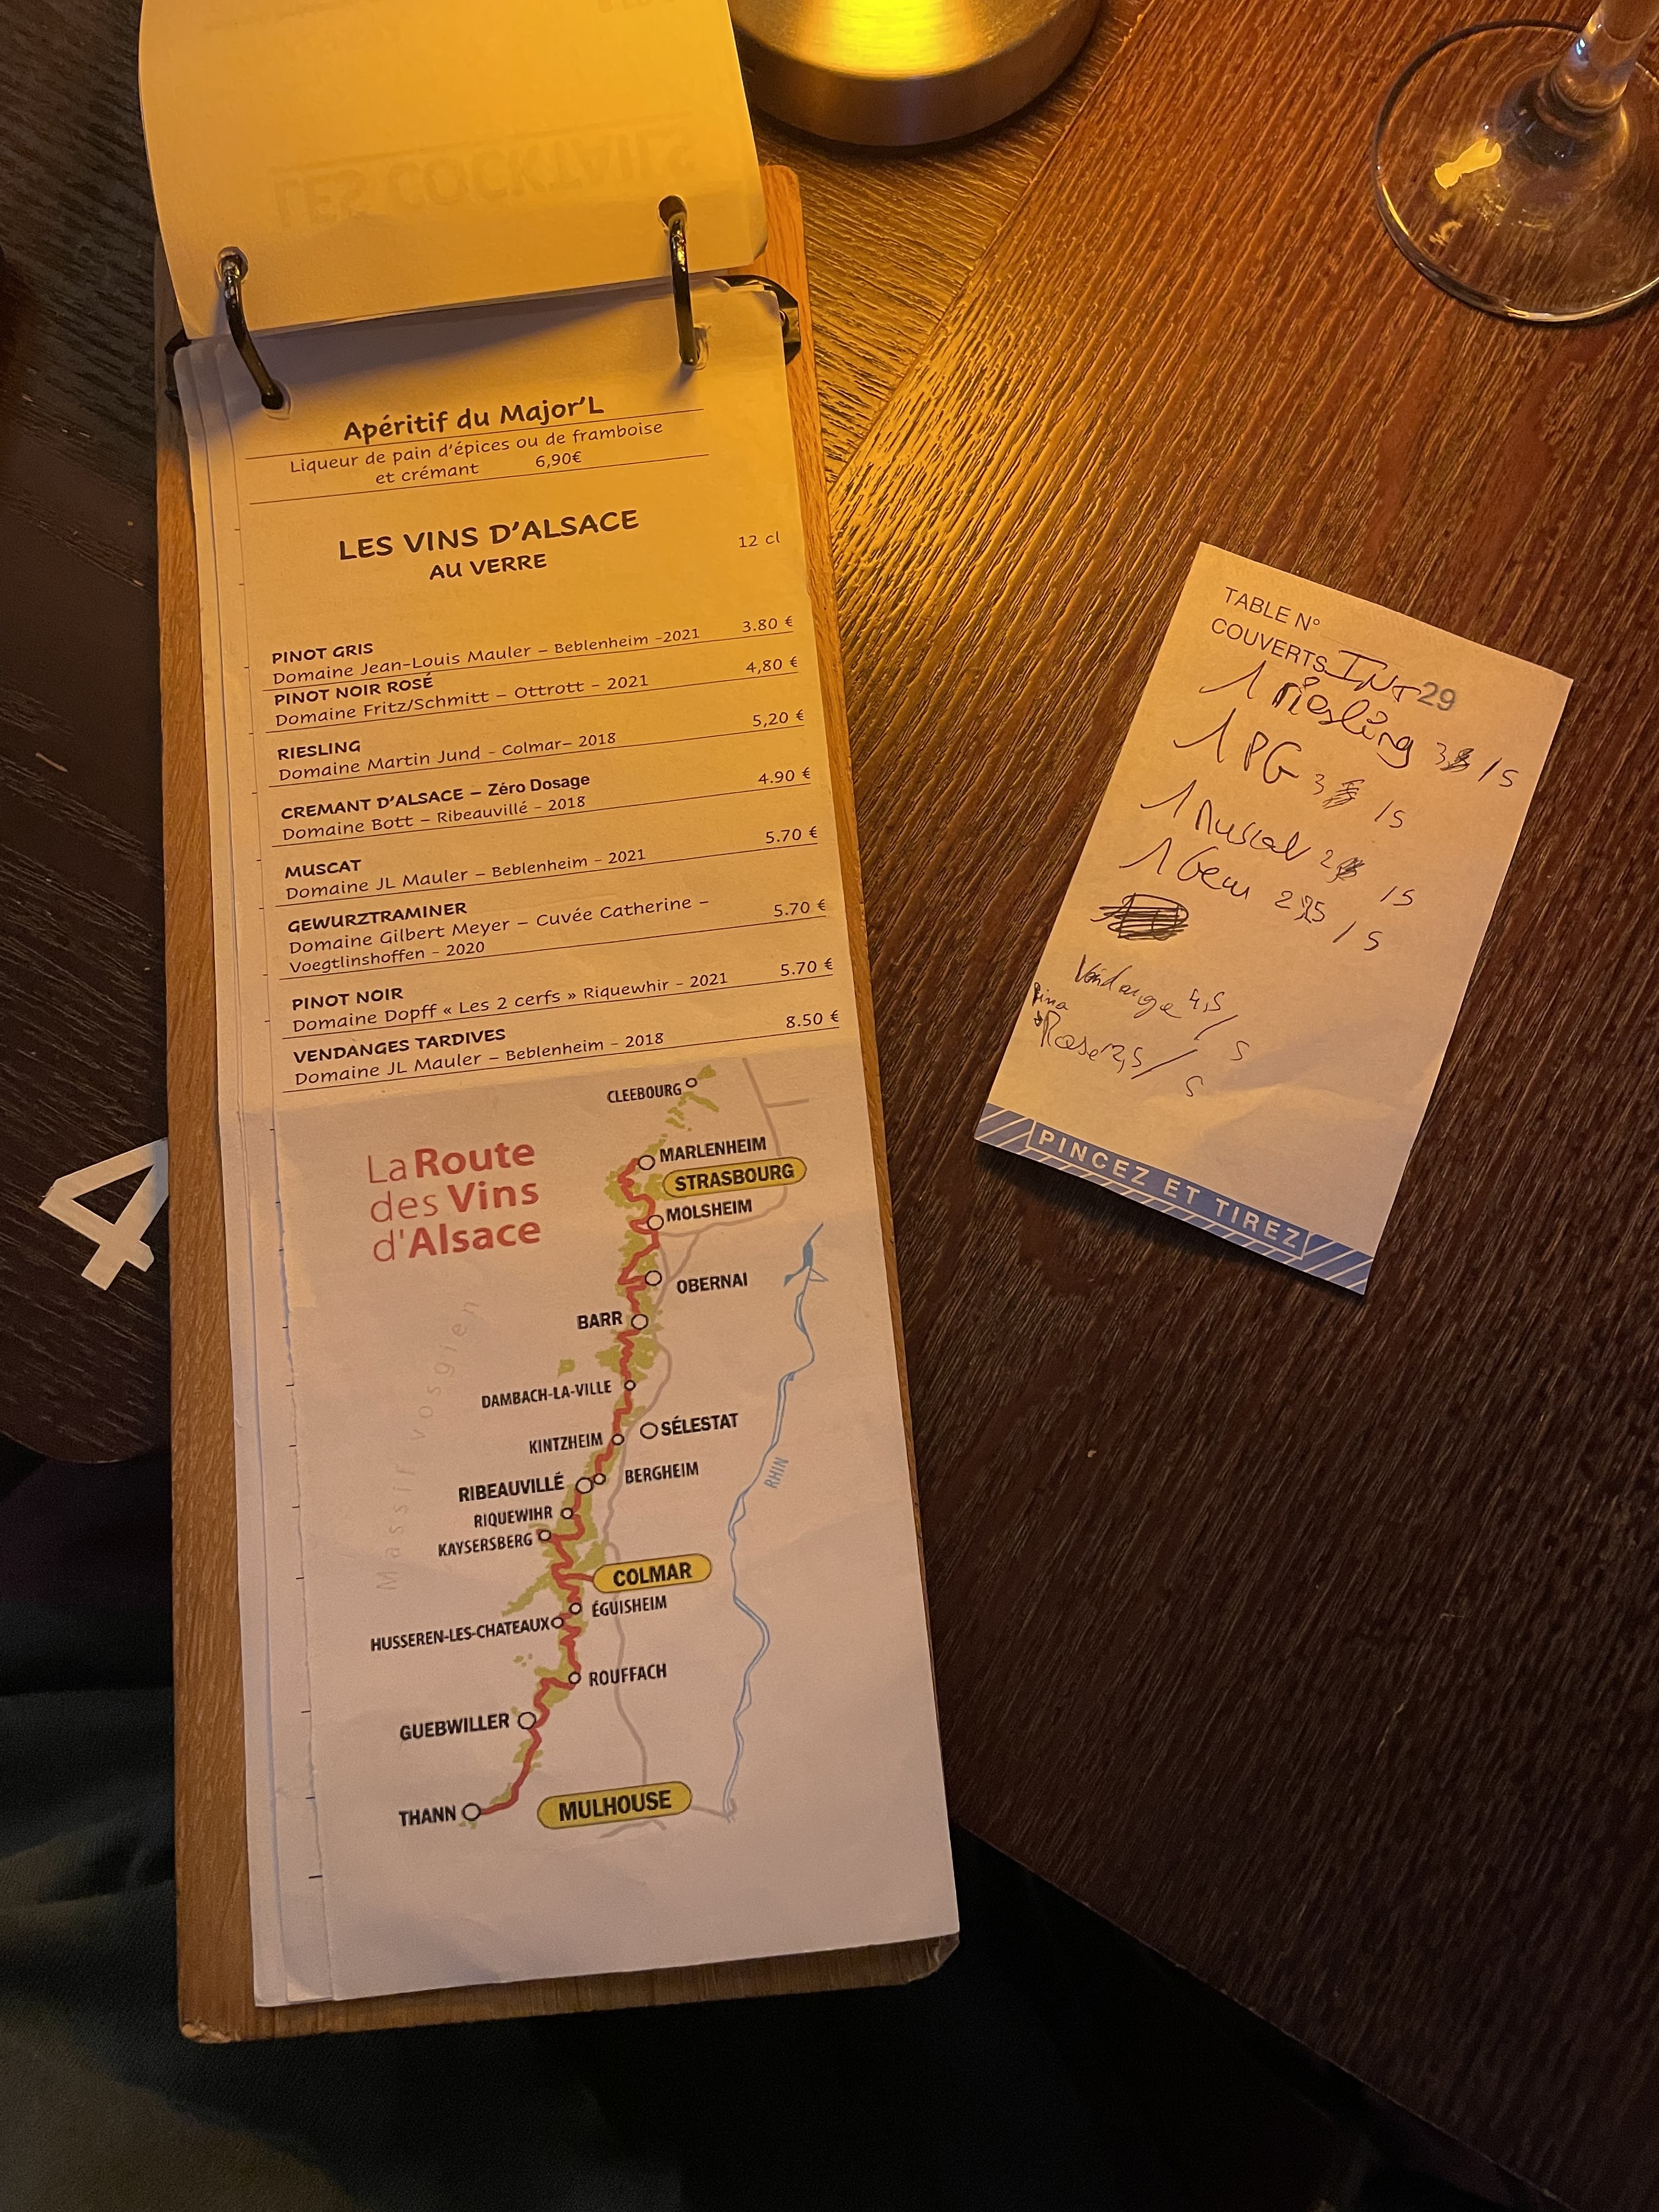 LES COCKTAILS
Apéritif du Major'L
Liqueur de pain d'épices ou de framboise
et crémant 6,90€
LES VINS D'ALSACE
AU VERRE
12 cl
PINOT GRIS
Domaine Jean-Louis Mauler – Beblenheim -2021 3.80 €
PINOT NOIR ROSÉ
Domaine Fritz/Schmitt – Ottrott - 2021 4,80 €
RIESLING
Domaine Martin Jund - Colmar– 2018 5,20 €
CREMANT D'ALSACE – Zéro Dosage
Domaine Bott – Ribeauvillé - 2018 4.90 €
MUSCAT
Domaine JL Mauler – Beblenheim - 2021 5.70 €
GEWURZTRAMINER
Domaine Gilbert Meyer – Cuvée Catherine –
Voegtlinshoffen - 2020 5.70 €
PINOT NOIR
Domaine Dopff « Les 2 cerfs » Riquewhir - 2021 5.70 €
VENDANGES TARDIVES
Domaine JL Mauler – Beblenheim - 2018 8.50 €
La Route
des Vins
d'Alsace
CLEEBOURG
MARLENHEIM
STRASBOURG
MOLSHEIM
OBERNAI
BARR
DAMBACH-LA-VILLE
SÉLESTAT
KINTZHEIM
BERGHEIM
RIBEAUVILLÉ
RIQUEWIHR
KAYSERSBERG
COLMAR
ÉGUISHEIM
HUSSEREN-LES-CHATEAUX
ROUFFACH
GUEBWILLER
THANN
MULHOUSE
Massif vosgien
RHIN
4
TABLE N°
COUVERTS INT 29
1 riesling 3 / 5
1 PG 3 / 5
1 Muscat 2 / 5
1 Gew 2 / 5
Vendange 4,5 / 5
Pino
Rose 2,5 / 5
PINCEZ ET TIREZ